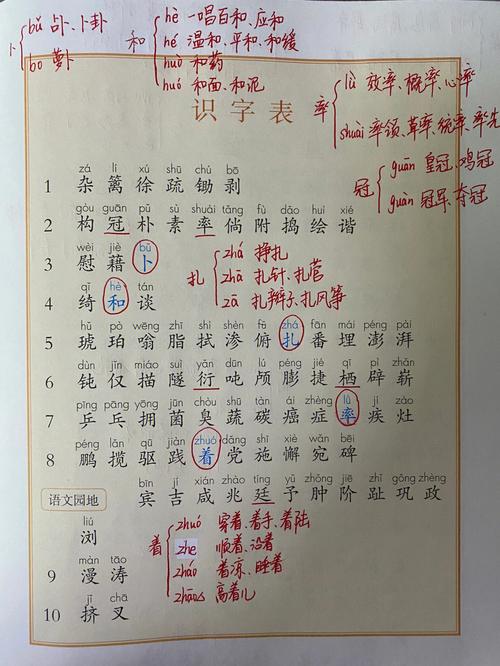 卜 bǔ 占卜、卜卦
bo 萝卜
和 hè 一唱百和、应和
hé 温和、平和、和缓
huò 和药
huó 和面、和泥
识字表
率 lǜ 效率、概率、心率
shuài 率领、草率、统率、率先
冠 guān 皇冠、鸡冠
guàn 冠军、夺冠
zá lí xú shū chú bō
1 杂 篱 徐 疏 锄 剥
gòu guān pǔ sù shuài tǎng fù dǎo huì xié
2 构 冠 朴 素 率 倘 附 捣 绘 谐
wèi jiè bǔ
3 慰 藉 卜
扎 zhá 挣扎
zhā 扎针、扎营
zā 扎辫子、扎风筝
qǐ hè tán
4 绮 和 谈
hǔ pò wēng zhī shì shèn fǔ zhá fān mái péng pài
5 琥 珀 嗡 脂 拭 渗 俯 扎 番 埋 澎 湃
dùn jǐn miáo suì yǎn dūn lú péng jié qī pì zhǎn
6 钝 仅 描 隧 衍 吨 颅 膨 捷 栖 辟 崭
pīng pāng yōng jūn chòu shū tàn ái zhèng lǜ jí zào
7 乒 乓 拥 菌 臭 蔬 碳 癌 症 率 疾 灶
péng lǎn qū jiàn zhuó dǎng shī xiè wǎn bēi
8 鹏 揽 驱 践 着 党 施 懈 宛 碑
bīn jí xián zhào tíng yǔ zhǒng jiē zhǐ gǒng zhèng
语文园地 宾 吉 咸 兆 廷 予 肿 阶 趾 巩 政
liú
浏
着 zhuó 穿着、着手、着陆
zhe 顺着、沿着
zháo 着凉、睡着
zhāo 高着儿
màn tāo
9 漫 涛
jǐ chā
10 挤 叉